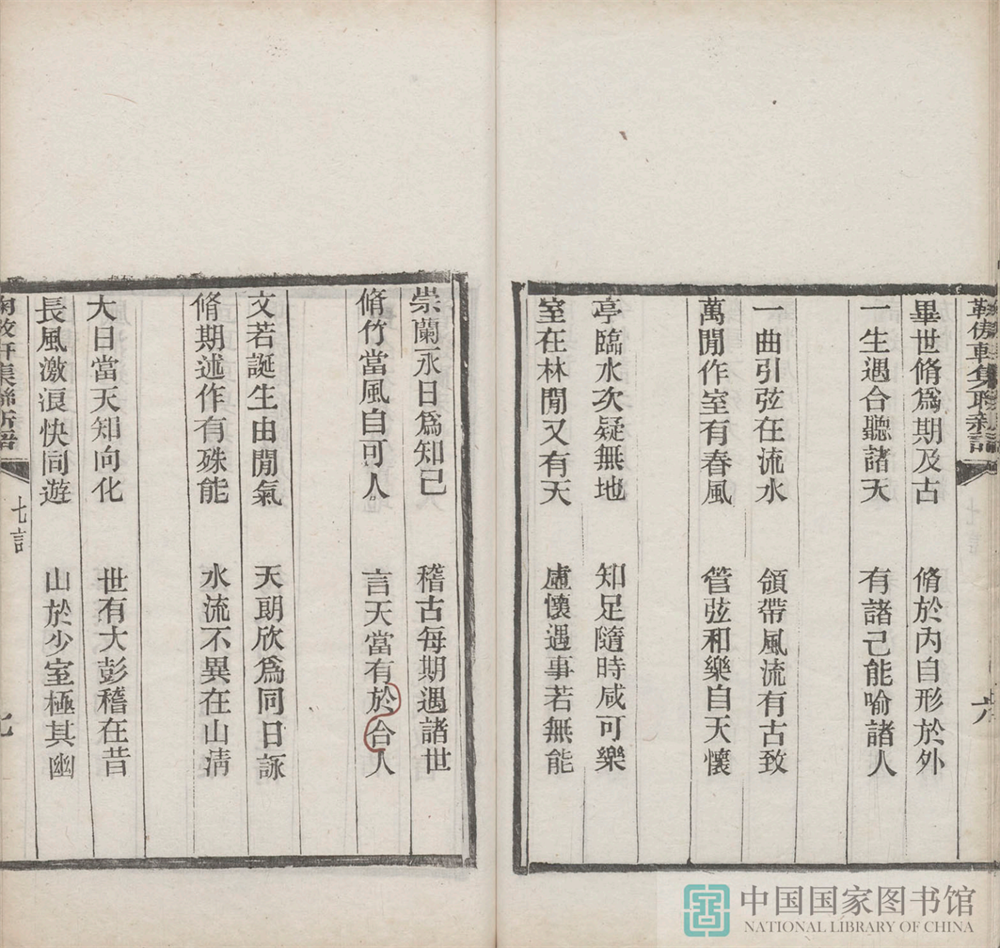 軒集聯新語
六
畢世脩爲期及古 脩於內自形於外
一生遇合聽諸天 有諸己能喻諸人
一曲引弦在流水 領帶風流有古致
萬閒作室有春風 管弦和樂自天懷
亭臨水次疑無地 知足隨時咸可樂
室在林閒又有天 虛懷遇事若無能
崇蘭永日爲知己 稽古每期遇諸世
脩竹當風自可人 言天當有於合人
文若誕生由閒氣 天朗欣爲同日詠
脩期述作有殊能 水流不異在山淸
大日當天知向化 世有大彭稽在昔
長風激浪快同遊 山於少室極其幽
軒集聯新語
七言
七
中国国家图书馆
NATIONAL LIBRARY OF CHINA